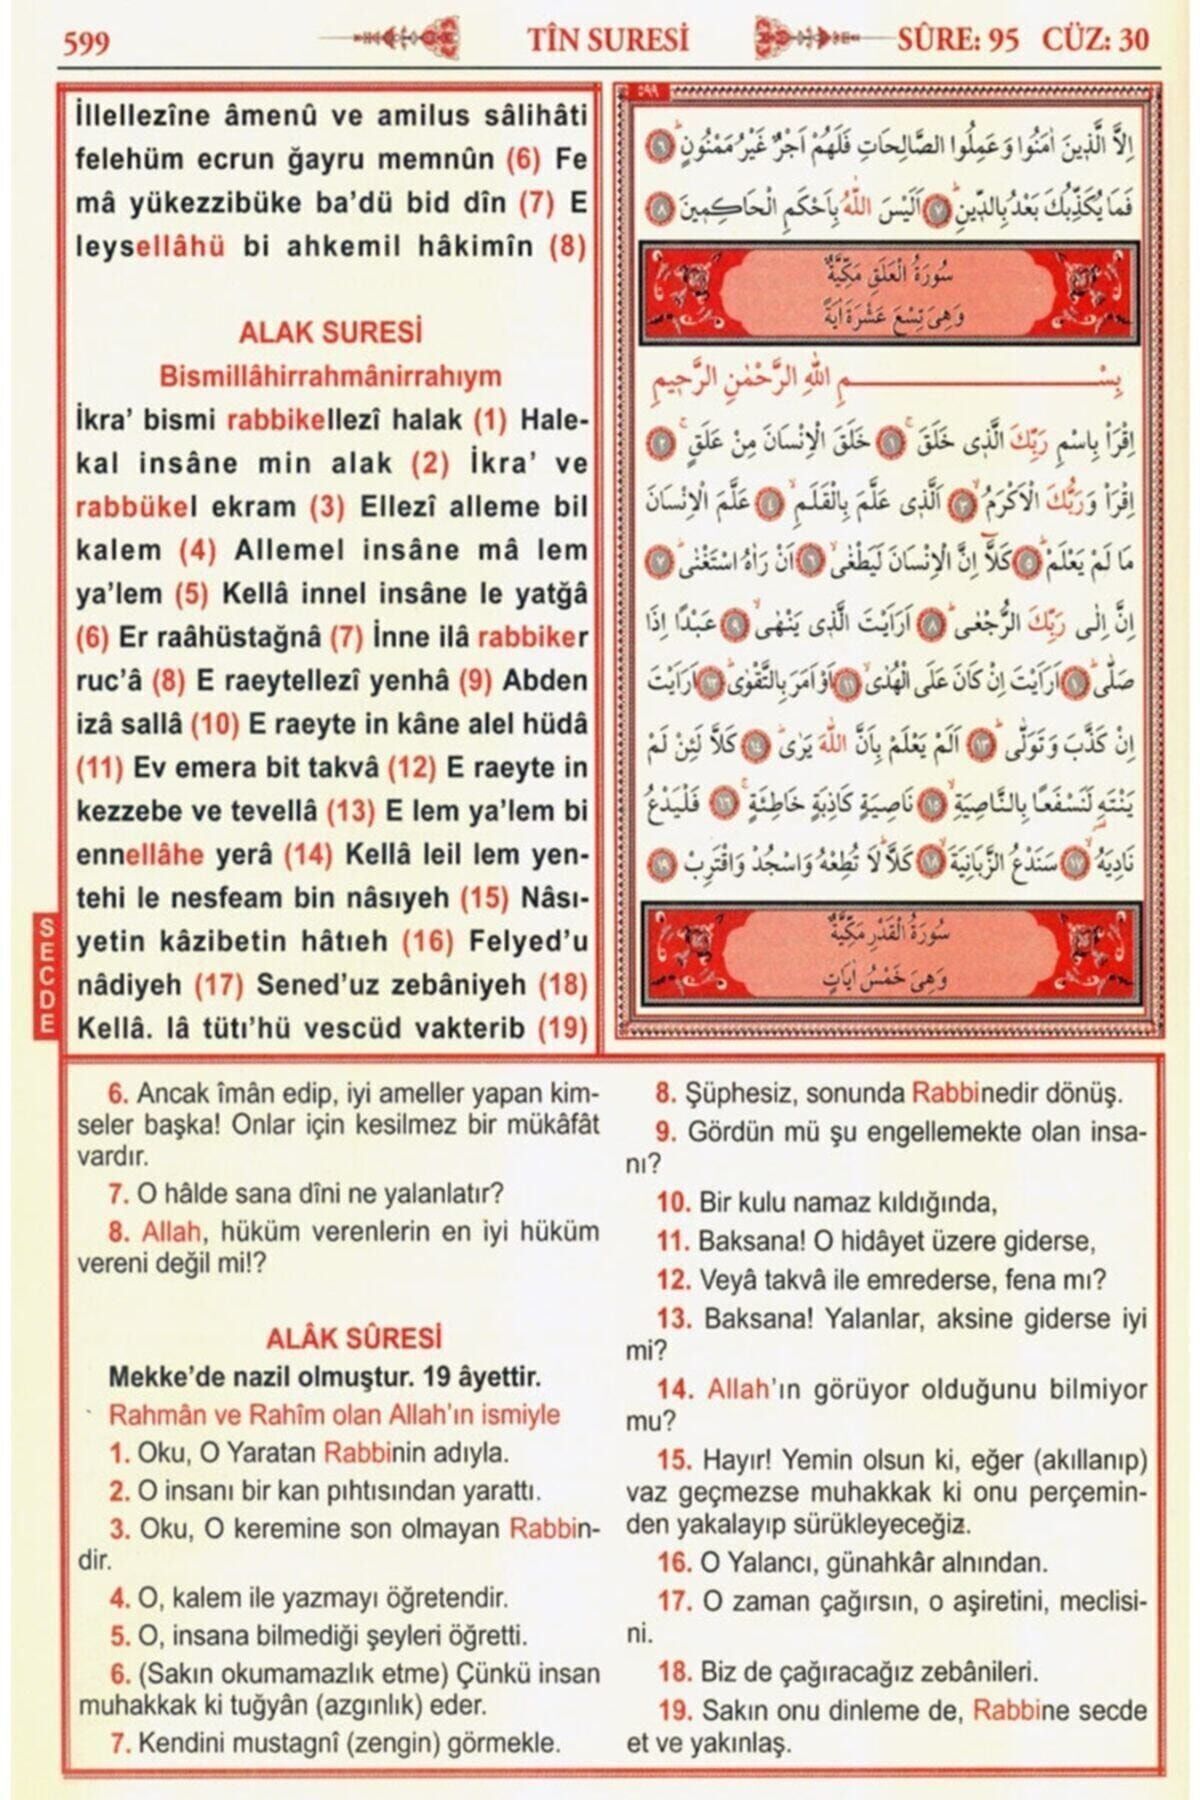 599
TÎN SURESİ
SÛRE: 95 CÜZ: 30
İllellezîne âmenû ve amilus sâlihâti
felehüm ecrun ğayru memnûn (6) Fe
mâ yükezzibüke ba’dü bid dîn (7) E
leysellâhü bi ahkemil hâkimîn (8)
ALAK SURESİ
Bismillâhirrahmânirrahıym
İkra’ bismi rabbikellezî halak (1) Hale-
kal insâne min alak (2) İkra’ ve
rabbükel ekram (3) Ellezî alleme bil
kalem (4) Allemel insâne mâ lem
ya’lem (5) Kellâ innel insâne le yatğâ
(6) Er raâhüstağnâ (7) İnne ilâ rabbiker
ruc’â (8) E raeytellezî yenhâ (9) Abden
izâ sallâ (10) E raeyte in kâne alel hüdâ
(11) Ev emera bit takvâ (12) E raeyte in
kezzebe ve tevellâ (13) E lem ya’lem bi
ennellâhe yerâ (14) Kellâ leil lem yen-
tehi le nesfeam bin nâsıyeh (15) Nâsı-
yetin kâzibetin hâtıeh (16) Felyed’u
nâdiyeh (17) Sened’uz zebâniyeh (18)
Kellâ. lâ tütı’hü vescüd vakterib (19)
SECDE
٥٩٩
اِلَّا الَّذِينَ اٰمَنُوا وَعَمِلُوا الصَّالِحَاتِ فَلَهُمْ اَجْرٌ غَيْرُ مَمْنُونٍ ٦
فَمَا يُكَذِّبُكَ بَعْدُ بِالدِّينِ ٧ اَلَيْسَ اللّٰهُ بِاَحْكَمِ الْحَاكِمِينَ ٨
سُورَةُ الْعَلَقِ مَكِّيَّةٌ
وَهِىَ تِسْعَ عَشْرَةَ اٰيَةً
بِسْمِ اللّٰهِ الرَّحْمٰنِ الرَّحِيمِ
اِقْرَاْ بِاسْمِ رَبِّكَ الَّذِى خَلَقَ ١ خَلَقَ الْاِنْسَانَ مِنْ عَلَقٍ ٢
اِقْرَاْ وَرَبُّكَ الْاَكْرَمُ ٣ اَلَّذِى عَلَّمَ بِالْقَلَمِ ٤ عَلَّمَ الْاِنْسَانَ
مَا لَمْ يَعْلَمْ ٥ كَلَّا اِنَّ الْاِنْسَانَ لَيَطْغٰى ٦ اَنْ رَاٰهُ اسْتَغْنٰى ٧
اِنَّ اِلٰى رَبِّكَ الرُّجْعٰى ٨ اَرَاَيْتَ الَّذِى يَنْهٰى ٩ عَبْدًا اِذَا
صَلّٰى ١٠ اَرَاَيْتَ اِنْ كَانَ عَلَى الْهُدٰى ١١ اَوْ اَمَرَ بِالتَّقْوٰى ١٢ اَرَاَيْتَ
اِنْ كَذَّبَ وَتَوَلّٰى ١٣ اَلَمْ يَعْلَمْ بِاَنَّ اللّٰهَ يَرٰى ١٤ كَلَّا لَئِنْ لَمْ
يَنْتَهِ لَنَسْفَعًا بِالنَّاصِيَةِ ١٥ نَاصِيَةٍ كَاذِبَةٍ خَاطِئَةٍ ١٦ فَلْيَدْعُ
نَادِيَهُ ١٧ سَنَدْعُ الزَّبَانِيَةَ ١٨ كَلَّا لَا تُطِعْهُ وَاسْجُدْ وَاقْتَرِبْ ١٩
سُورَةُ الْقَدْرِ مَكِّيَّةٌ
وَهِىَ خَمْسُ اٰيَاتٍ
6. Ancak îmân edip, iyi ameller yapan kim-
seler başka! Onlar için kesilmez bir mükâfât
vardır.
7. O hâlde sana dîni ne yalanlatır?
8. Allah, hüküm verenlerin en iyi hüküm
vereni değil mi!?
ALÂK SÛRESİ
Mekke’de nazil olmuştur. 19 âyettir.
Rahmân ve Rahîm olan Allah’ın ismiyle
1. Oku, O Yaratan Rabbinin adıyla.
2. O insanı bir kan pıhtısından yarattı.
3. Oku, O keremine son olmayan Rabbin-
dir.
4. O, kalem ile yazmayı öğretendir.
5. O, insana bilmediği şeyleri öğretti.
6. (Sakın okumamazlık etme) Çünkü insan
muhakkak ki tuğyân (azgınlık) eder.
7. Kendini mustagnî (zengin) görmekle.
8. Şüphesiz, sonunda Rabbinedir dönüş.
9. Gördün mü şu engellemekte olan insa-
nı?
10. Bir kulu namaz kıldığında,
11. Baksana! O hidâyet üzere giderse,
12. Veyâ takvâ ile emrederse, fena mı?
13. Baksana! Yalanlar, aksine giderse iyi
mi?
14. Allah’ın görüyor olduğunu bilmiyor
mu?
15. Hayır! Yemin olsun ki, eğer (akıllanıp)
vaz geçmezse muhakkak ki onu perçemin-
den yakalayıp sürükleyeceğiz.
16. O Yalancı, günahkâr alnından.
17. O zaman çağırsın, o aşiretini, meclisi-
ni.
18. Biz de çağıracağız zebânileri.
19. Sakın onu dinleme de, Rabbine secde
et ve yakınlaş.